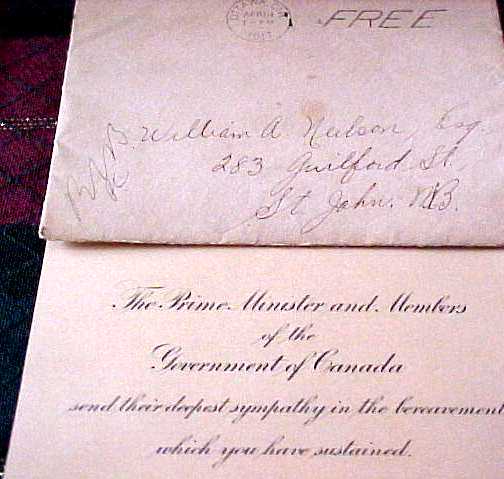 OTTAWA, ONT.
APRIL
1917
FREE
William A. Neilson, Esq.
283 Guilford St.
St. John. N.B.
The Prime Minister and Members
of the
Government of Canada
send their deepest sympathy in the bereavement
which you have sustained.